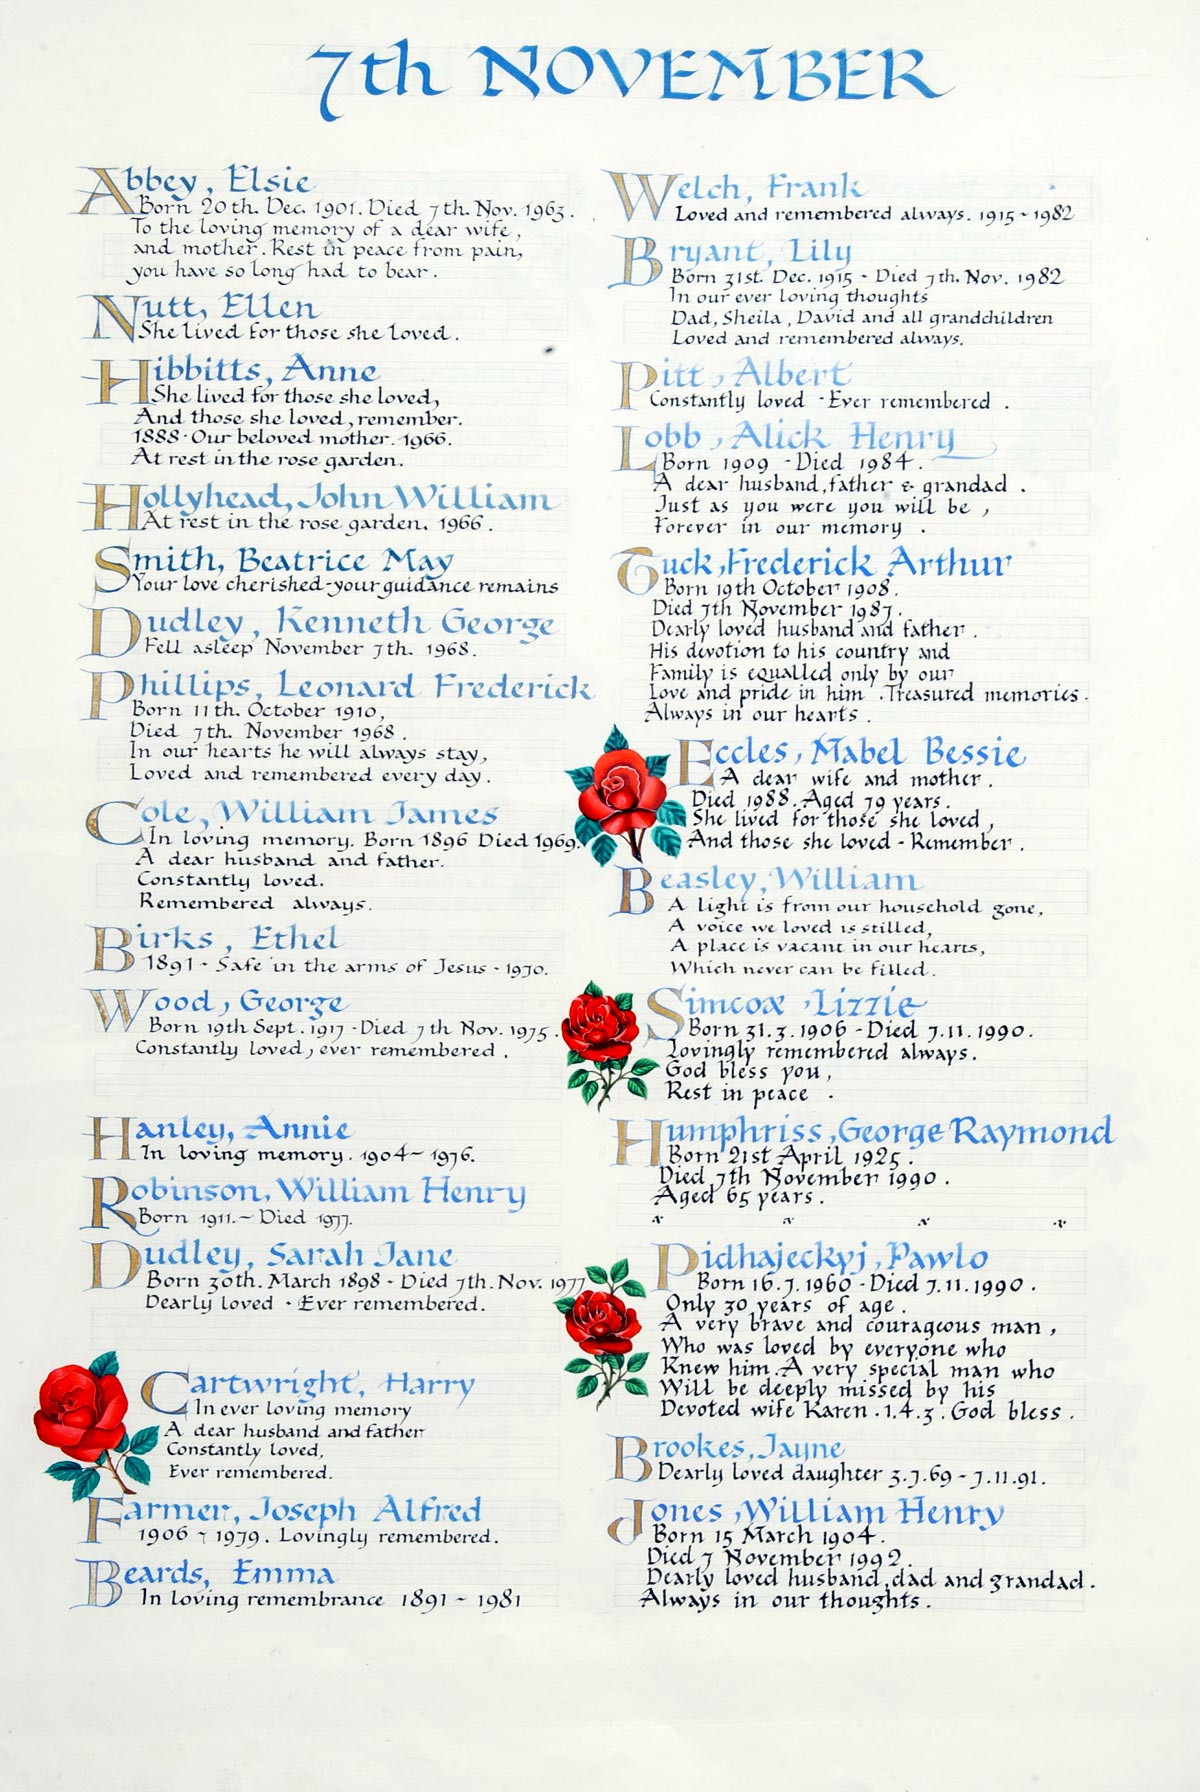 7th NOVEMBER
Abbey, Elsie
Born 20th. Dec. 1901. Died 7th. Nov. 1963.
To the loving memory of a dear wife,
and mother. Rest in peace from pain,
you have so long had to bear.
Nutt, Ellen
She lived for those she loved.
Hibbitts, Anne
She lived for those she loved,
And those she loved, remember.
1888 · Our beloved mother · 1966.
At rest in the rose garden.
Hollyhead, John William
At rest in the rose garden. 1966.
Smith, Beatrice May
Your love cherished - your guidance remains
Dudley, Kenneth George
Fell asleep November 7th. 1968.
Phillips, Leonard Frederick
Born 11th. October 1910,
Died 7th. November 1968.
In our hearts he will always stay,
Loved and remembered every day.
Cole, William James
In loving memory. Born 1896 Died 1969.
A dear husband and father.
Constantly loved.
Remembered always.
Birks, Ethel
1891 - Safe in the arms of Jesus - 1970.
Wood, George
Born 19th Sept. 1917 - Died 7th Nov. 1975.
Constantly loved, ever remembered.
Hanley, Annie
In loving memory. 1904 - 1976.
Robinson, William Henry
Born 1911. - Died 1977.
Dudley, Sarah Jane
Born 30th. March 1898 - Died 7th. Nov. 1977
Dearly loved · Ever remembered.
Cartwright, Harry
In ever loving memory
A dear husband and father
Constantly loved,
Ever remembered.
Farmer, Joseph Alfred
1906 - 1979. Lovingly remembered.
Beards, Emma
In loving remembrance 1891 - 1981
Welch, Frank
Loved and remembered always. 1915 - 1982
Bryant, Lily
Born 31st. Dec. 1915 - Died 7th. Nov. 1982
In our ever loving thoughts
Dad, Sheila, David and all grandchildren
Loved and remembered always.
Pitt, Albert
Constantly loved - Ever remembered.
Lobb, Alick Henry
Born 1909 - Died 1984.
A dear husband, father & grandad.
Just as you were you will be,
Forever in our memory.
Tuck, Frederick Arthur
Born 19th October 1908.
Died 7th November 1987.
Dearly loved husband and father.
His devotion to his country and
Family is equalled only by our
Love and pride in him. Treasured memories.
Always in our hearts.
Eccles, Mabel Bessie
A dear wife and mother.
Died 1988. Aged 79 years.
She lived for those she loved,
And those she loved - Remember.
Beasley, William
A light is from our household gone,
A voice we loved is stilled,
A place is vacant in our hearts,
Which never can be filled.
Simcox, Lizzie
Born 31.3.1906 - Died 7.11.1990.
Lovingly remembered always.
God bless you,
Rest in peace.
Humphriss, George Raymond
Born 21st April 1925.
Died 7th November 1990.
Aged 65 years.
Pidhajeckyj, Pawlo
Born 16.7.1960 - Died 7.11.1990.
Only 30 years of age.
A very brave and courageous man,
Who was loved by everyone who
Knew him. A very special man who
Will be deeply missed by his
Devoted wife Karen. 1.4.3. God bless.
Brookes, Jayne
Dearly loved daughter 3.7.69 - 7.11.91.
Jones, William Henry
Born 15 March 1904.
Died 7 November 1992.
Dearly loved husband, dad and grandad.
Always in our thoughts.